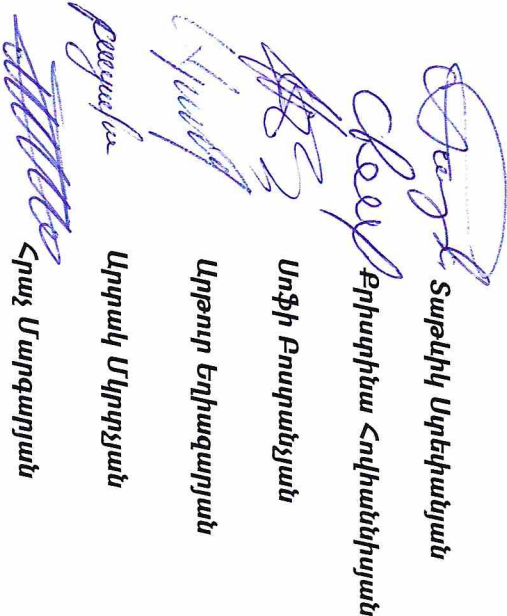 Տաթևիկ Ստեփանյան
Քրիստինա Հովհաննիսյան
Սոֆի Բոստանչյան
Արթուր Եղիազարյան
Արտակ Մկրտչյան
Հրաչ Մարգարյան